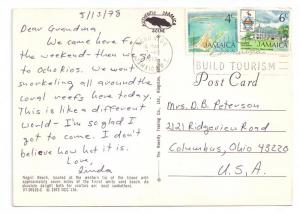 5/13/78
Dear Grandma,
We came here for
the weekend - then we go
to Ocho Rios. We went
snorkeling all around the
coral reefs here today.
This is like a different
World - I'm so glad I
got to come. I don't
believe how hot it is.
Love,
Linda
Negril Beach, located at the western tip of the island with
approximately seven miles of the finest white sand beach. An
absolute delight both for visitors and local sunbathers.
JAMAICA
SCENE
4c
JAMAICA
6c
JAMAICA
BUILD TOURISM
Post Card
Mrs. D. B. Peterson
2121 Ridgeview Road
Columbus, Ohio 43220
U.S.A.